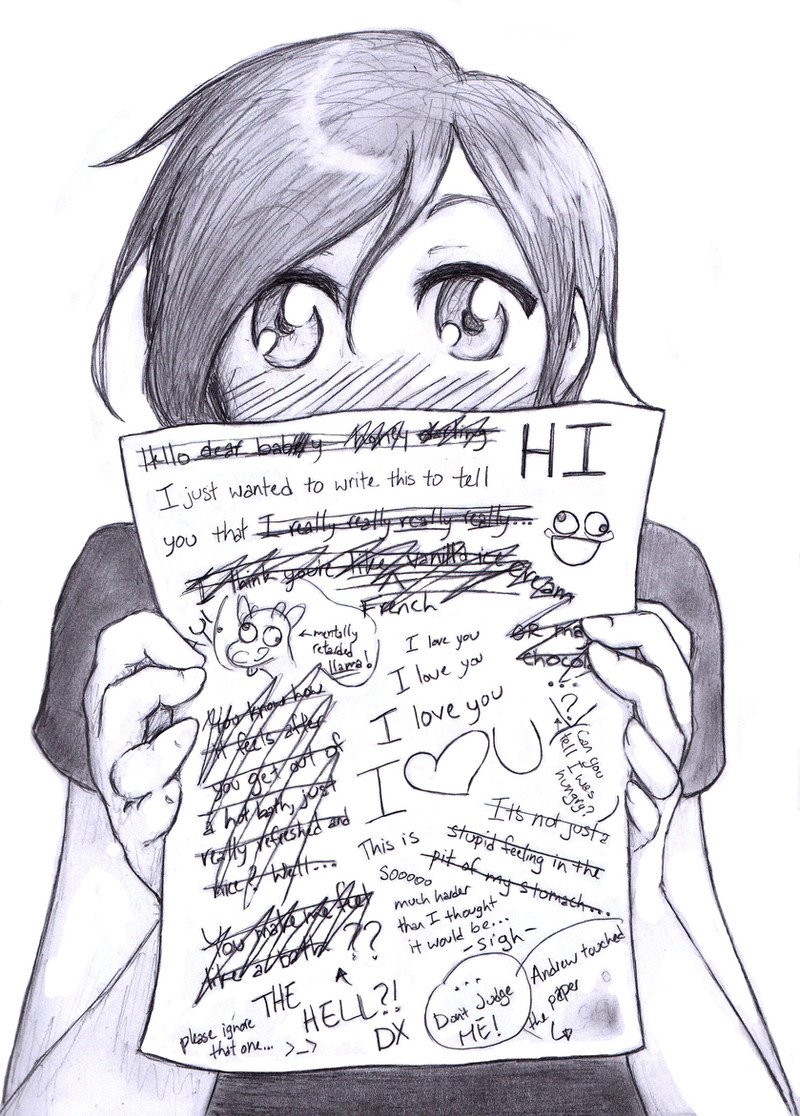 Hello dear baby honey darling
HI
I just wanted to write this to tell
you that I really really really really...
I think you're like vanilla ice cream
French
OR ma
chocol
...?
← mentally
retarded
llama!
I love you
I love you
I love you
I ♡ U
Can you
tell I was
hungry?
You know how
it feels after
you get out of
a hot bath, just
really refreshed and
nice? Well...
You make me feel
like a bath ??
THE
HELL?!
DX
please ignore
that one... >_>
It's not just a
stupid feeling in the
pit of my stomach...
This is
Sooooo
much harder
than I thought
it would be...
-sigh-
...
Dont judge
ME!
Andrew touched
the paper